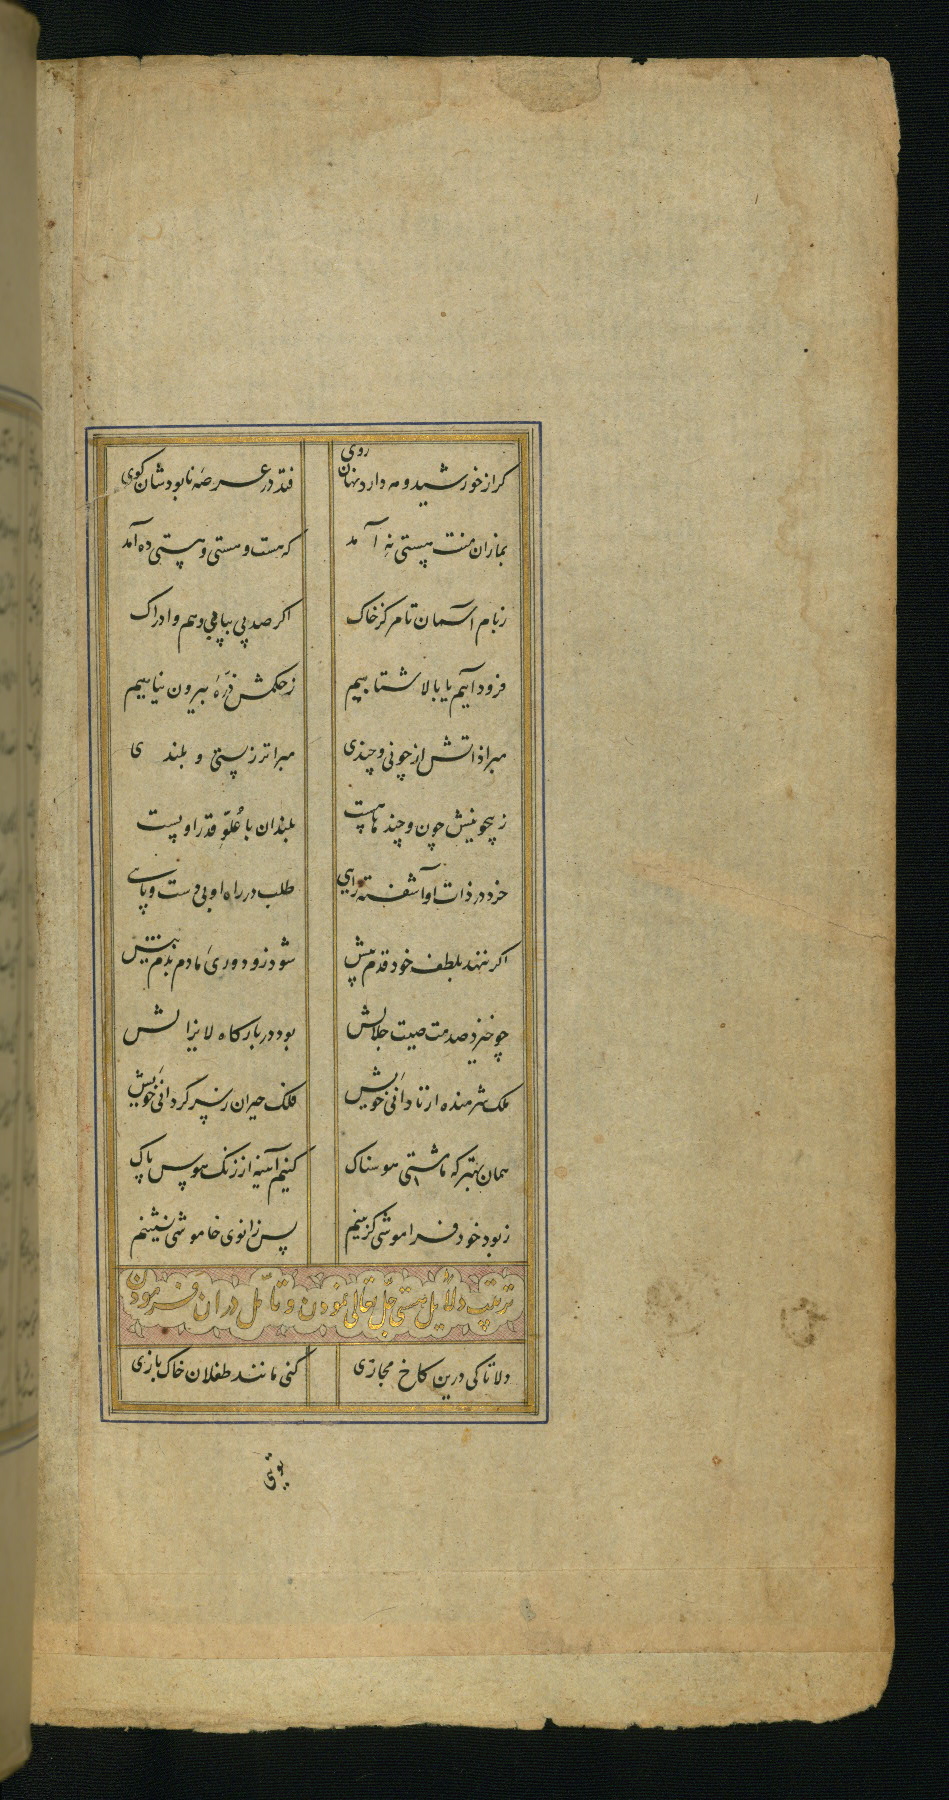 کر از خورشید و مه دارد نهان روی فتد در عرصهٔ نابودشان کوی
بما زان منت هستی نه آمد که هست و هستی و هستی ده آمد
ز بام آسمان تا مرکز خاک اکر صد پی بپای وهم و ادراک
فرود آییم یا بالا شتابیم ز حکمش ذرهٔ بیرون نیابیم
مبرا ذاتش از چونی و چندی مبراتر ز پستی و بلندی
ز بیچونیش چون و چند ما پست بلندان با علو قدر او پست
خرد در ذات او آشفته رایی طلب در راه او بی دست و پایی
اکر ننهد بلطف خود قدم پیش شود زو دوری ما دم بدم بیش
چو خیزد صدمت صیت جلالش بود در بارکاه لایزالش
ملک شرمنده از نادانی خویش فلک حیران ز سرکردانی خویش
همان بهتر که ما مشتی هوسناک کنیم آیینه از زنک هوس پاک
ز بود خود فراموشی کزینیم پس زانوی خاموشی نشینیم
ترتیب دلایل هستی حق تعالی نمودن و تامل در ان فرمودن
دلا تا کی درین کاخ مجازی کنی مانند طفلان خاک بازی
تویی